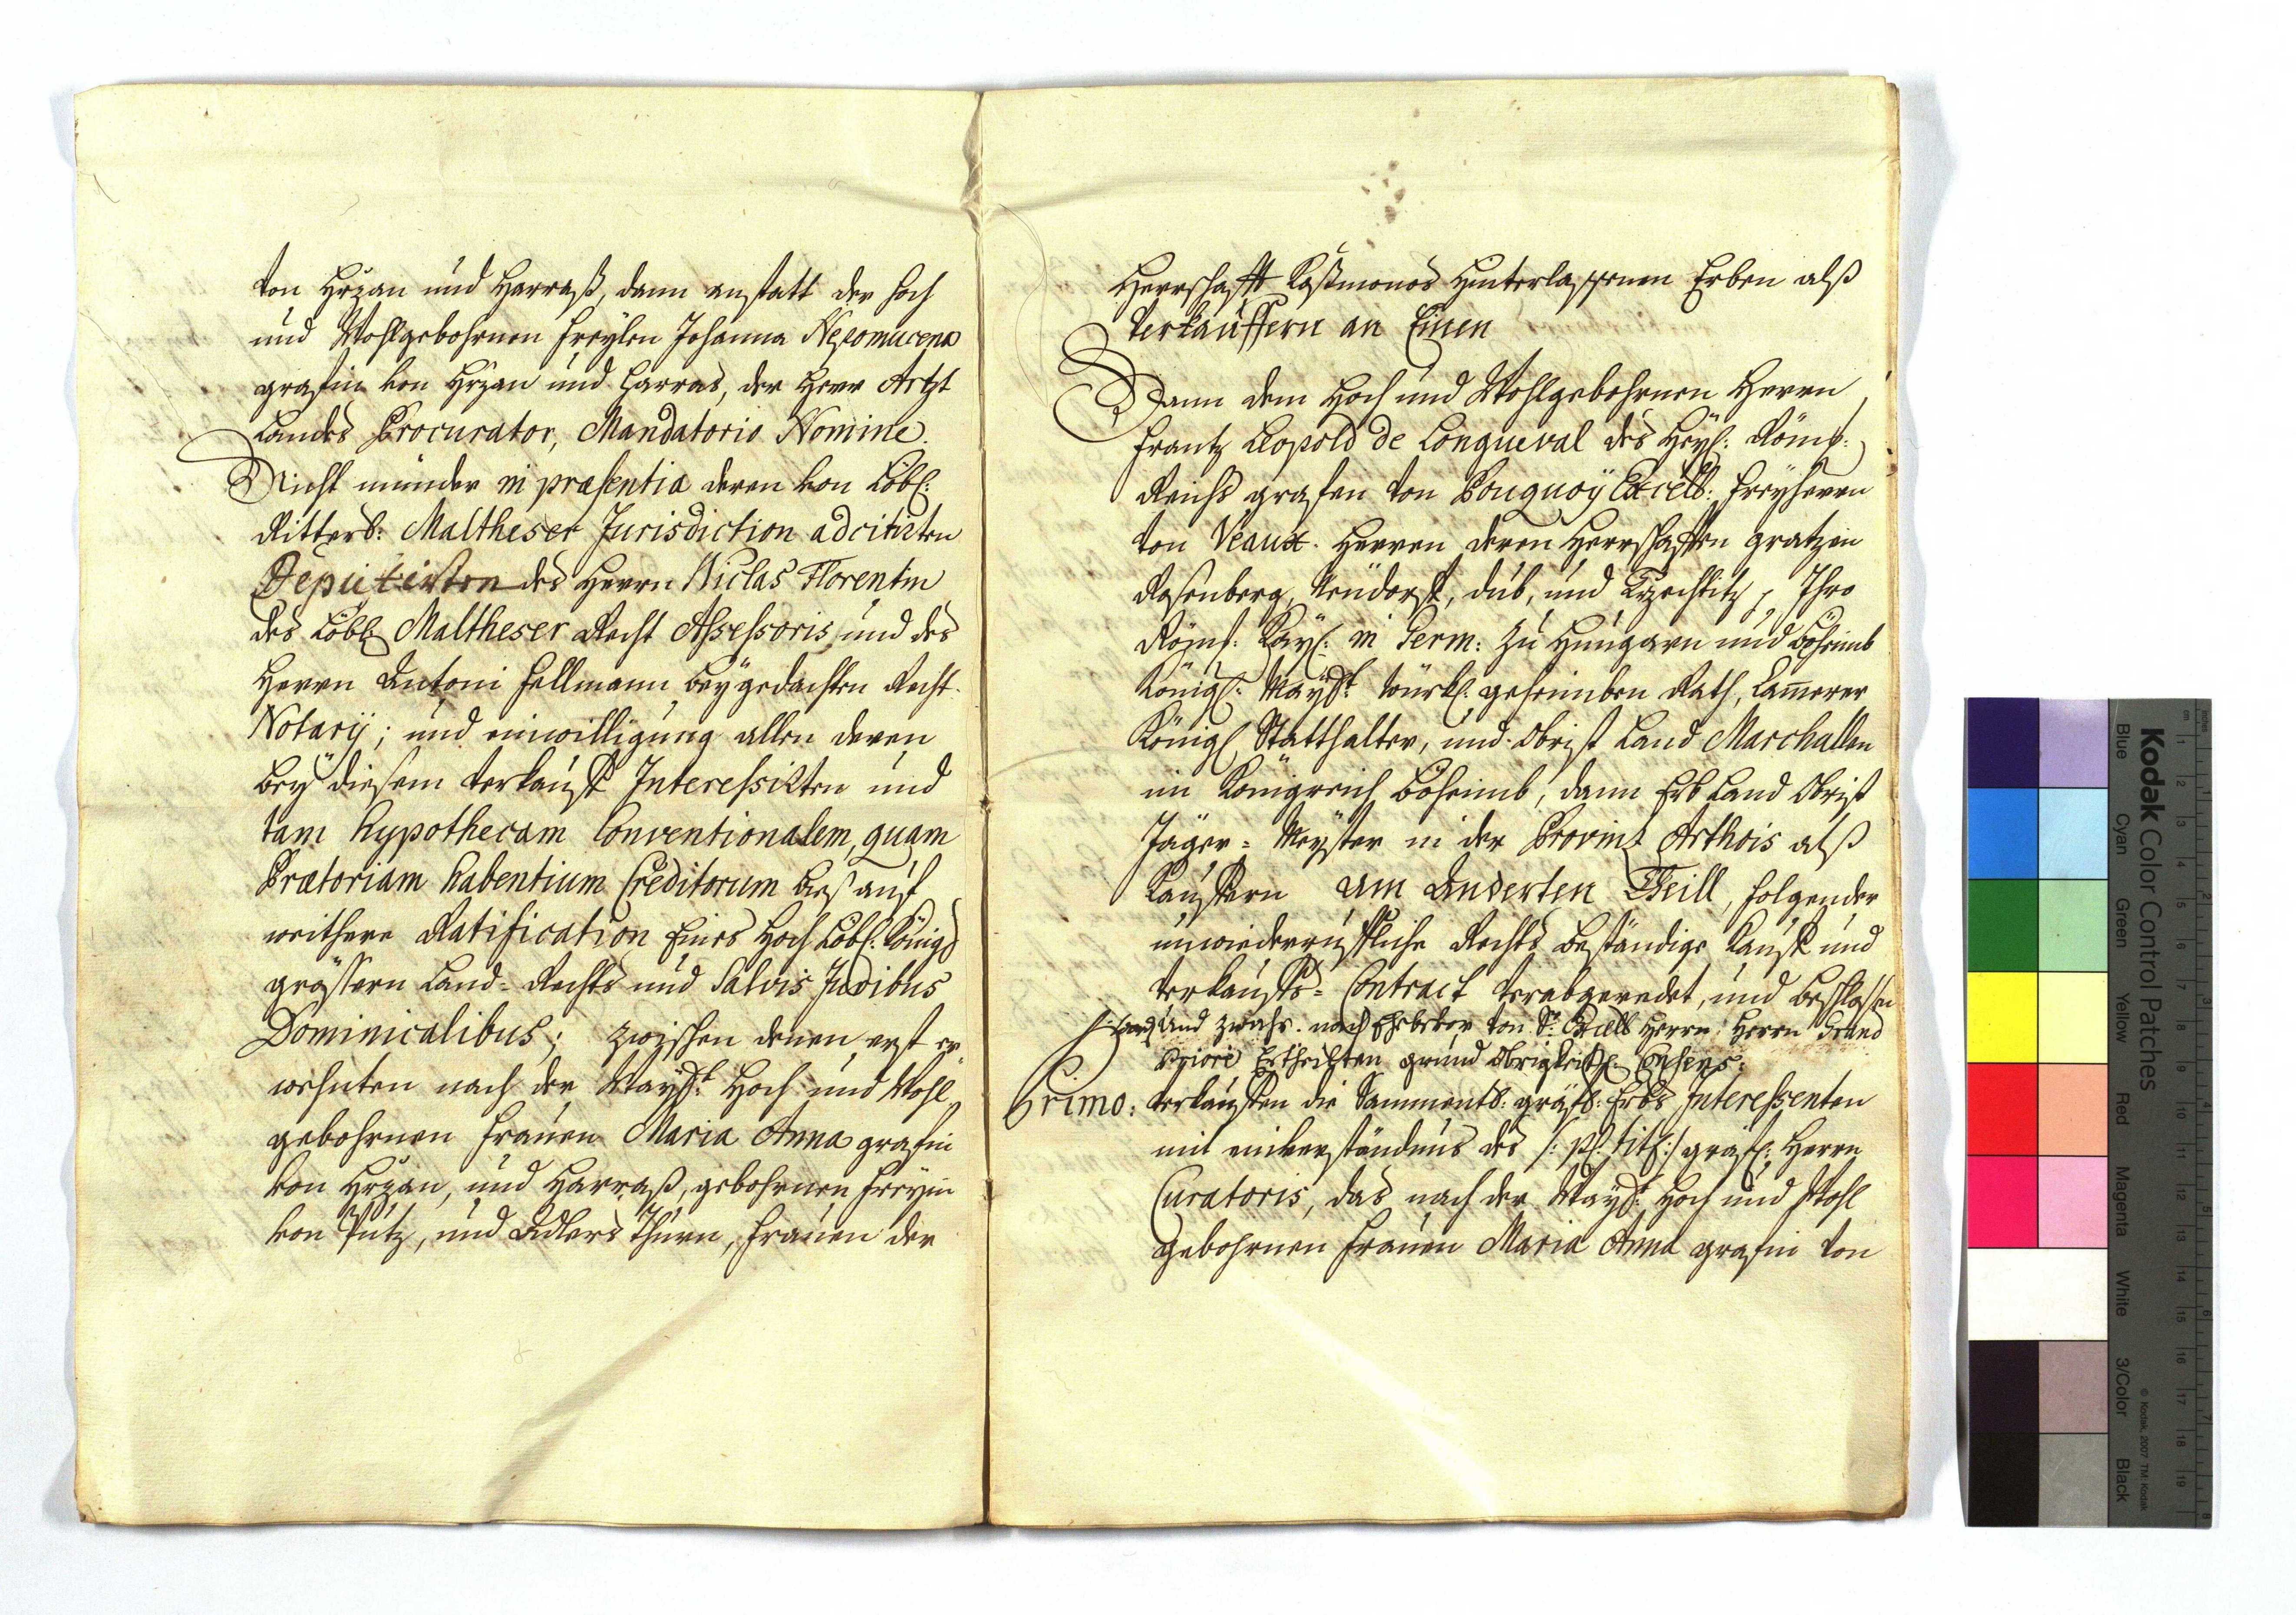 von Hrzan und Harraß, dann anstatt der hoch
und Wohlgebohrnen Freylen Johanna Nepomucena
grafin von Hrzan und Harras, der Herr Artzt
Landes Procurator, Mandatorio Nomine.
Nicht minder in præsentia deren von Löbl:
Ritterl: Maltheser Jurisdiction adcitirten
Deputirten des Herrn Niclas Florentin
des Löbl: Maltheser Recht Assessoris, und des
Herrn Antoni Fellmann beygedachten Recht
Notarÿ; und einwilligung allen deren
beÿ diesem verkaufft Interessirten und
tam hypothecam Conventionalem, quam
Prætoriam habentium Creditorum biß auf
weithere Ratification Eines Hoch Löbl: Königl
grössern Land-Rechts und Salvis Juribus
Dominicalibus; zwischen denen erst er
wehnten nach der Mayst: Hoch und Wohl
gebohrnen Frauen Maria Anna grafin
von Hrzan, und Harraß, gebohrnen Freyin
von Putz, und Adlers Thurn, Frauen der
Herrschafft Koßmonos hinterlassenen Erben alß
Verkauffern an Einen
Dann dem Hoch und Wohlgebohrnen Herrn
Frantz Leopold de Longueval des Heyl: Röm:
Reichs grafen von Bouquoÿ Excell: Freyherrn
von Veaux. Herren deren Herrschafften gratzen
Rosenberg, Neudorff, dub, und Trzechtitz, Ihro
Röm: Kayl: in Germ: zu Hungarn und Böheimb
Königl: Mayst: würkl: geheimben Rath, Camerer
Königl Statthalter, und Obrist Land Marchallen
im Königreich Böheimb, dann Erb Land Obrist
Jäger-Meyster in der Provintz Arthois alß
Kauffern am Anderten Theill, folgender
unwiederruffliche Rechts beständige Kauff und
verkauffs-Contract verabgeredet, und beschlossen
und zwahr. nach von Sr Excell Herrn: Herrn Grand
Priore Ertheilten grund Obrigkeitl: Consens:
Primo: verkauffen die Sammentl: gräfl: Erbs Interessenten
mit einverständnus des /: pl: tit:/ gräfl: Herrn
Curatoris, das nach der Mayst: Hoch und Wohl
gebohrnen Frauen Maria Anna grafin von
Kodak Color Control Patches
Blue
Cyan
Green
Yellow
Red
Magenta
White
3/Color
Black
© Kodak, 2007 TM: Kodak